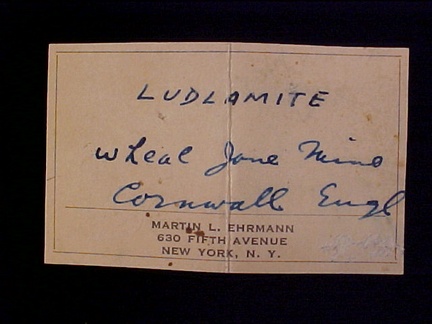 LUDLAMITE
Wheal Jane Mine
Cornwall Engl
MARTIN L. EHRMANN
630 FIFTH AVENUE
NEW YORK, N. Y.